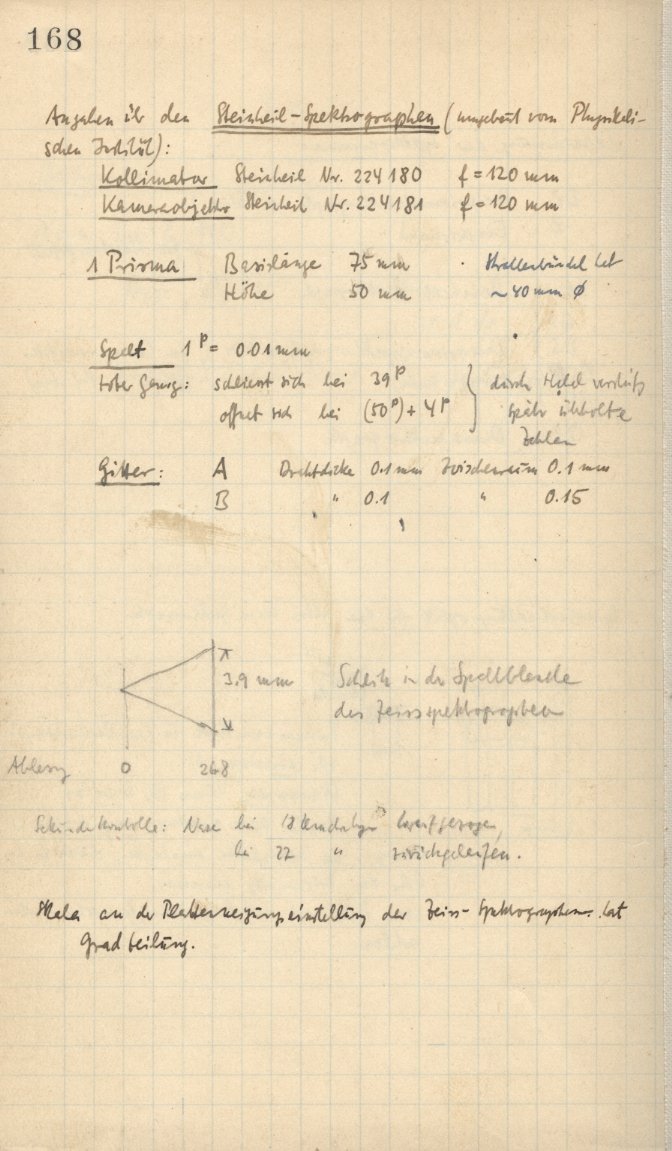 168
Angaben üb den Steinheil-Spektrographen (umgebaut vom Physikali-
schen Institut):
Kollimator Steinheil Nr. 224180 f = 120 mm
Kameraobjektiv Steinheil Nr. 224181 f = 120 mm
1 Prisma Basislänge 75 mm Strahlenbündel hat
Höhe 50 mm ~40 mm ø
Spalt 1 p = 0.01 mm
toter Gang: schliesst sich bei 39 p } durch
öffnet sich bei (50 p) + 4 p später überholte
Zahlen
Gitter: A Drahtdicke 0.1 mm Zwischenraum 0.1 mm
B " 0.1 " 0.15
3.9 mm Scheibe in der Spaltblende
des Zeissspektrographen
Ablesung 0 268
Sekundenkontrolle: Nase bei 18
bei 22 " zurückgelaufen.
Skala an der Plattenneigungseinstellung der Zeiss-Spektrographen hat
Gradteilung.